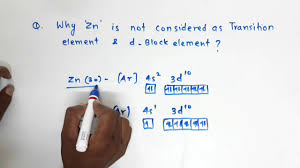 Q. Why 'Zn' is not considered as Transition
element & d-Block element ?
Zn (30) - [Ar] 4s² 3d¹⁰
[Ar] 4s¹ 3d¹⁰